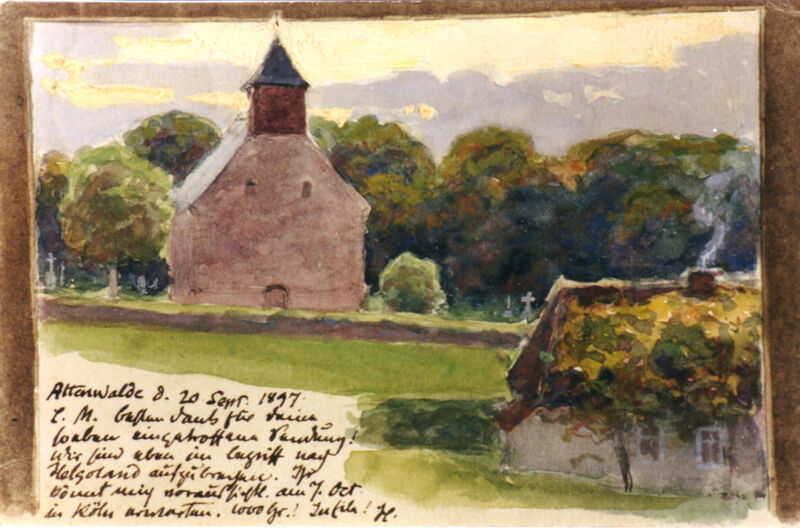 Altenwalde d. 20 Sept. 1897.
L. M. besten Dank für Deine
soeben eingetroffene Sendung!
Wir sind eben im Begriff nach
Helgoland aufzubrechen. Ihr
könnt mich voraussichtl. am 7. Oct.
in Köln erwarten. 1000 Gr.! In Eile! H.